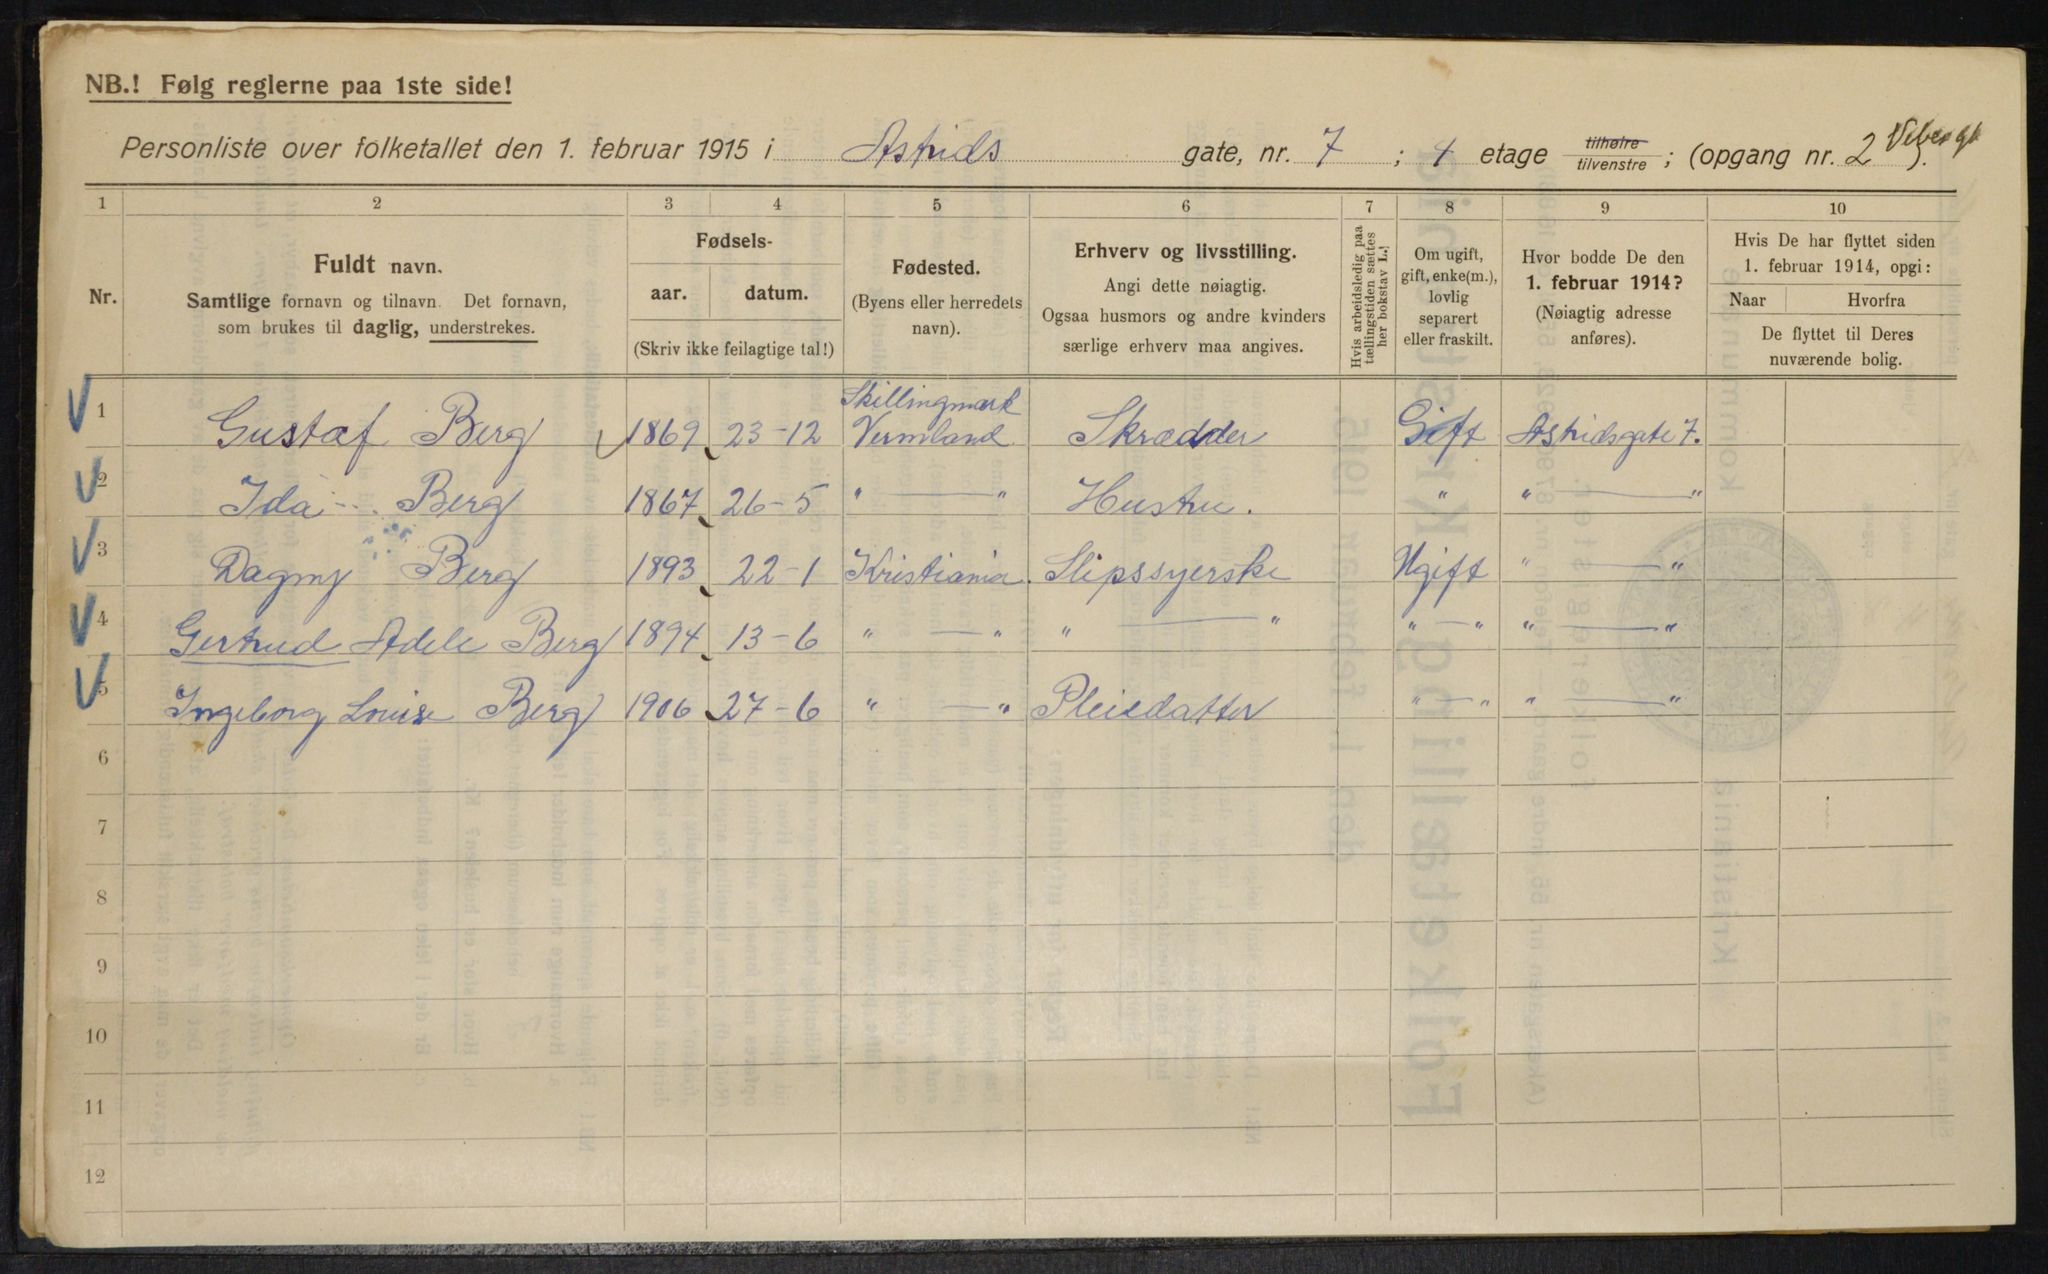 NB.! Følg reglerne paa 1ste side!
Personliste over folketallet den 1. februar 1915 i Astrids gate, nr. 7 ; 4 etage tilhøire tilvenstre ; (opgang nr. 2 ).
1 2 3 4 5 6 7 8 9 10
Nr.
Fuldt navn.
Samtlige fornavn og tilnavn. Det fornavn,
som brukes til daglig, understrekes.
Fødsels-
aar. datum.
(Skriv ikke feilagtige tal!)
Fødested.
(Byens eller herredets
navn).
Erhverv og livsstilling.
Angi dette nøiagtig.
Ogsaa husmors og andre kvinders
særlige erhverv maa angives.
Hvis arbeidsledig paa
tællingstiden sættes
her bokstav L.!
Om ugift,
gift, enke(m.),
lovlig
separert
eller fraskilt.
Hvor bodde De den
1. februar 1914?
(Nøiagtig adresse
anføres).
Hvis De har flyttet siden
1. februar 1914, opgi:
Naar Hvorfra
De flyttet til Deres
nuværende bolig.
1 Gustaf Berg 1869 23-12 Skillingmark Vermland Skrædder Gift Astridsgate 7.
2 Ida Berg 1867 26-5 " — " Hustru. " " — "
3 Dagny Berg 1893 22-1 Kristiania Slipssyerske Ugift " — "
4 Gertrud Adele Berg 1894 13-6 " — " " — " " — " " — "
5 Ingeborg Louise Berg 1906 27-6 " — " Pleiedatter " — " " — "
6
7
8
9
10
11
12